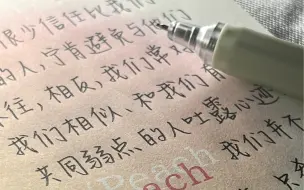 很少信任比我们
的人,宁肯避免与他们
往,相反,我们常对
我们相似、和我们有
共同弱点的人吐露心迹
我们并不
Peach
each